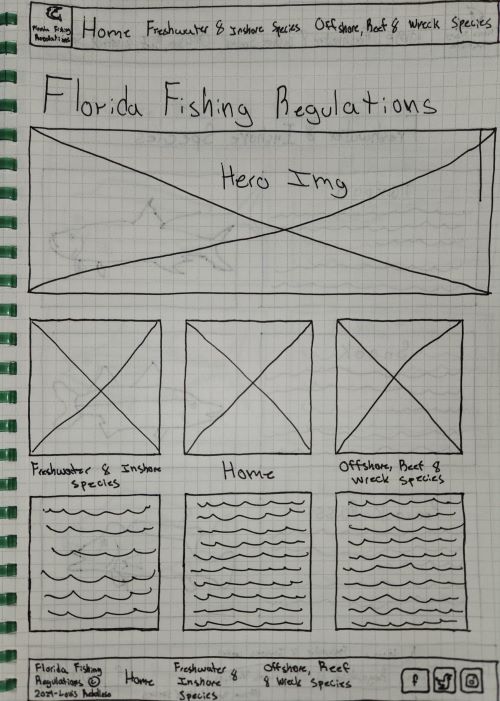 Florida Fishing
Regulations
Home Freshwater & Inshore Species Offshore, Reef & Wreck Species
Florida Fishing Regulations
Hero Img
Freshwater & Inshore
species
Home
Offshore, Reef &
Wreck Species
Florida Fishing
Regulations ©
2021-Louis
Home
Freshwater &
Inshore
Species
Offshore, Reef
& Wreck Species
f